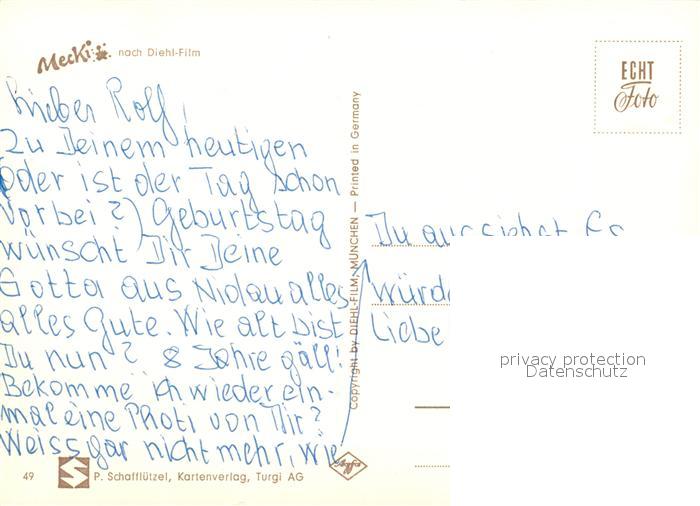 Mecki nach Diehl-Film
ECHT
Foto
Lieber Rolf,
Zu Deinem heutigen
oder ist der Tag schon
vorbei?) Geburtstag
wünscht Dir Deine
Gotta aus Nidau alles
alles Gute. Wie alt bist
Du nun? 8 Jahre gäll!
Bekomme ich wieder ein-
mal eine Photi von Dir?
Weiss gar nicht mehr, wie
Du aussiehst
würde
Liebe
Copyright by DIEHL-FILM, MÜNCHEN — Printed in Germany
privacy protection
Datenschutz
49 P. Schafflützel, Kartenverlag, Turgi AG
Agfa